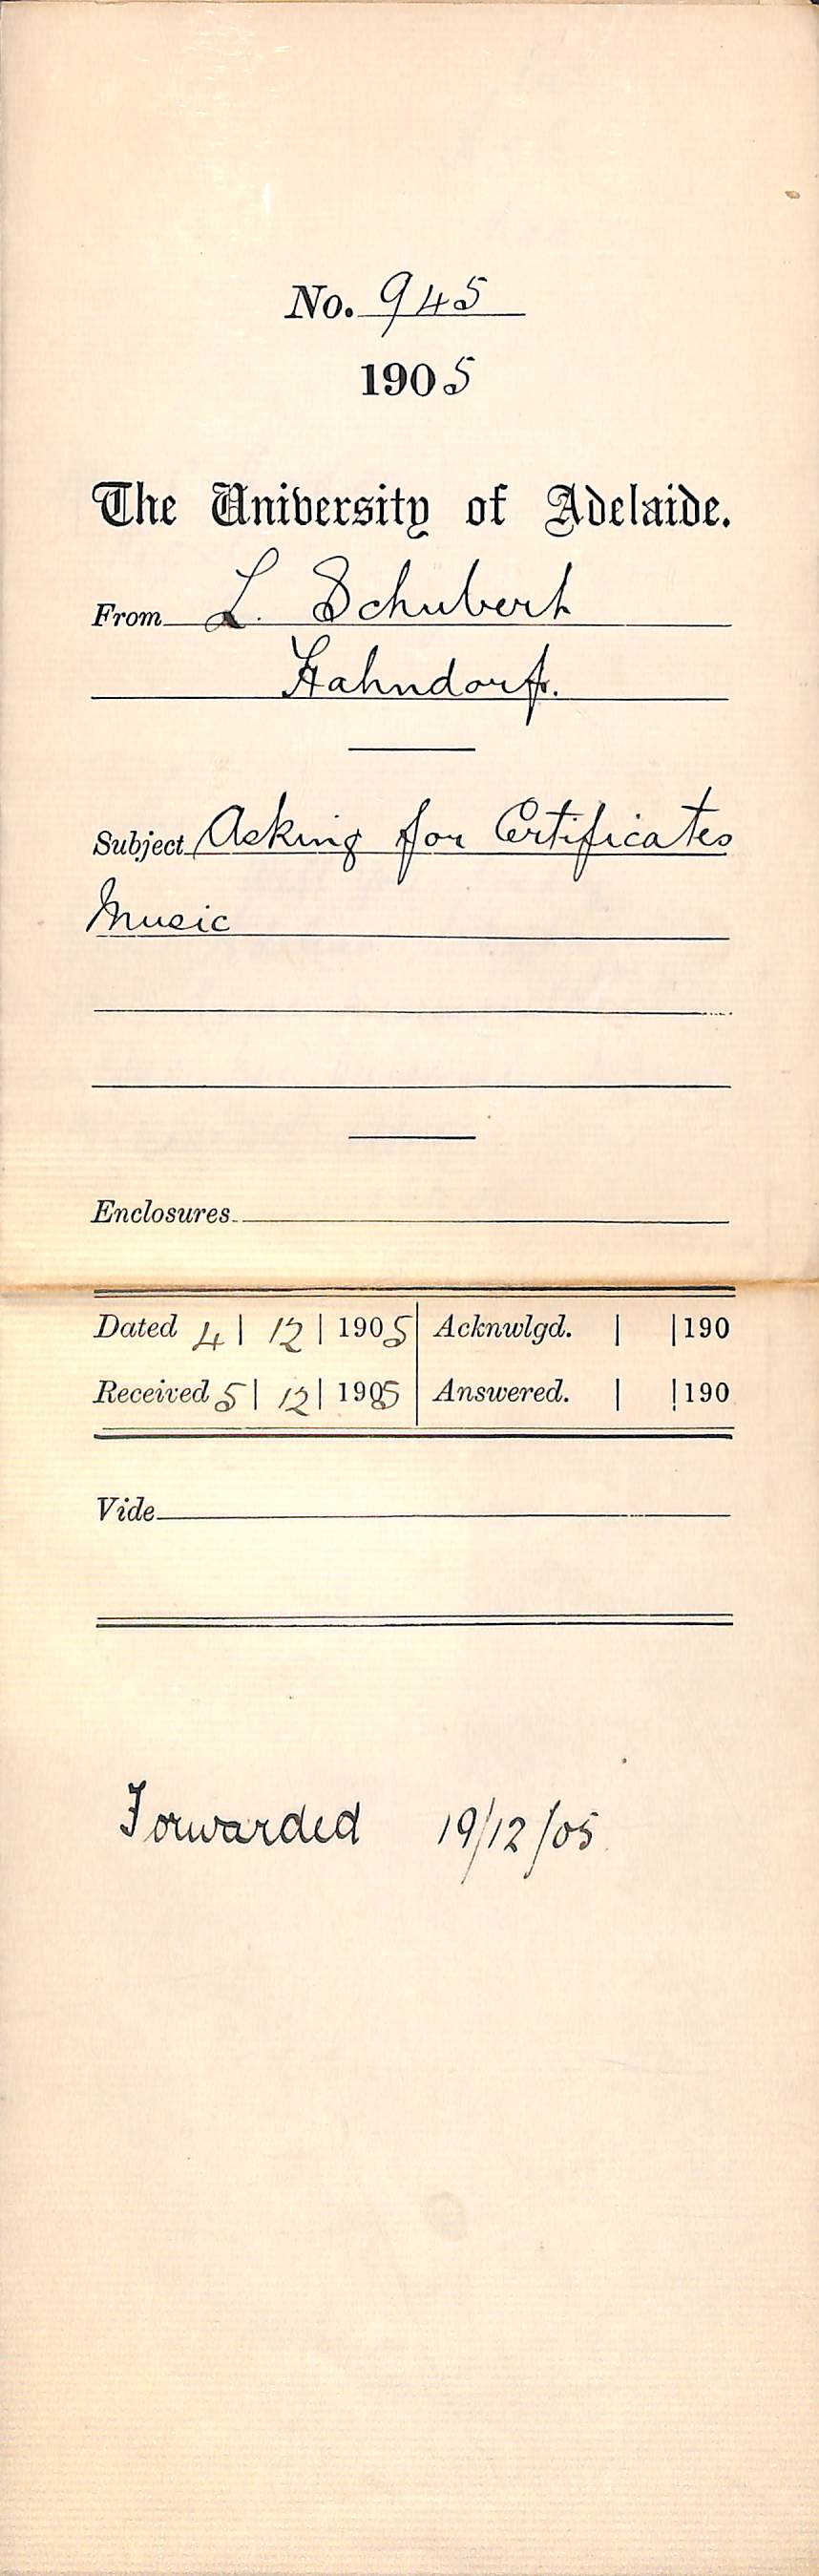 No. 945
1905
The University of Adelaide.
From L. Schubert
Hahndorf.
Subject Asking for Certificates
Music
Enclosures
Dated 4 | 12 | 1905 Acknwlgd. | | 190
Received 5 | 12 | 1905 Answered. | | 190
Vide
Forwarded 19/12/05